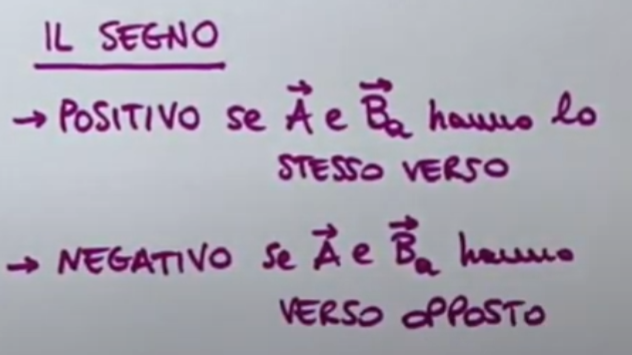 IL SEGNO
→ POSITIVO se A⃗ e B⃗a hanno lo
STESSO VERSO
→ NEGATIVO se A⃗ e B⃗a hanno
VERSO OPPOSTO